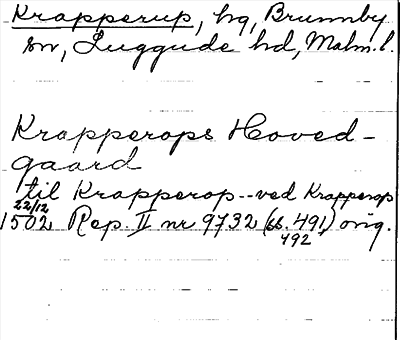 Krapperup, hg, Brunnby
sn, Luggude hd, Malm. l.
Krapperops Hoved-
gaard
til Krapperop--ved Krapperop
22/12
1502 Rep. II nr 9732 (ss. 491, orig.
492)